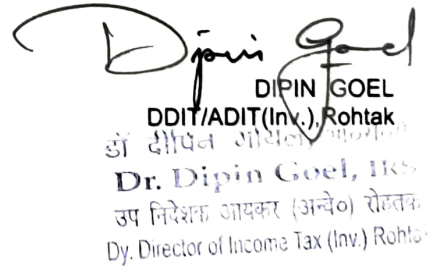 Dipin Goel
DIPIN GOEL
DDIT/ADIT(Inv.),Rohtak
डॉ दीपिन गोयल,
Dr. Dipin Goel, IRS
उप निदेशक आयकर (अन्वे०) रोहतक
Dy. Director of Income Tax (Inv.) Rohta